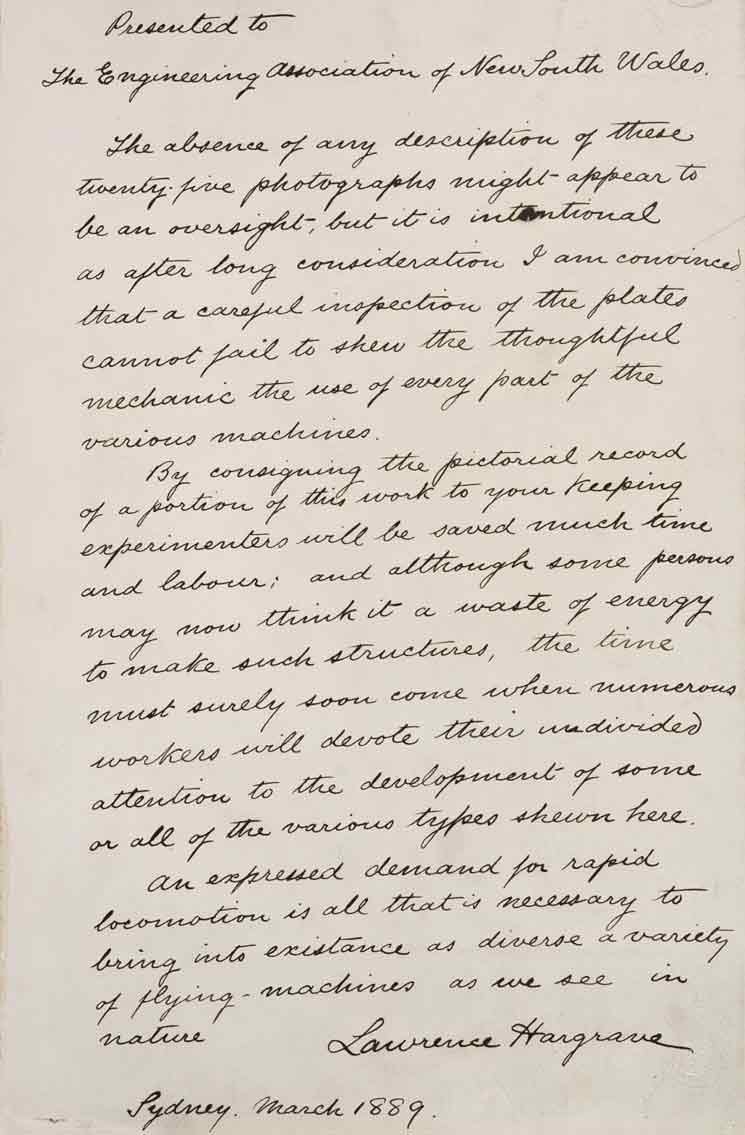 Presented to
The Engineering Association of New South Wales.
The absence of any description of these
twenty-five photographs might appear to
be an oversight, but it is intentional
as after long consideration I am convinced
that a careful inspection of the plates
cannot fail to shew the thoughtful
mechanic the use of every part of the
various machines.
By consigning the pictorial record
of a portion of this work to your keeping
experimenters will be saved much time
and labour; and although some persons
may now think it a waste of energy
to make such structures, the time
must surely soon come when numerous
workers will devote their undivided
attention to the development of some
or all of the various types shewn here.
An expressed demand for rapid
locomotion is all that is necessary to
bring into existance as diverse a variety
of flying-machines as we see in
nature
Lawrence Hargrave
Sydney. March 1889.